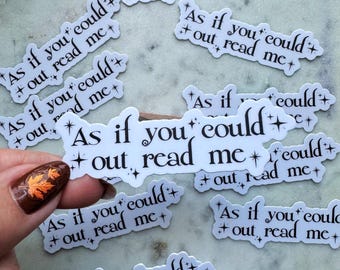 As if you could
out read me
As if you could
out read me
As if you could
out read me
As if you could
out read me
As if you could
out read me
As if you could
out read me
As if you could
out read me